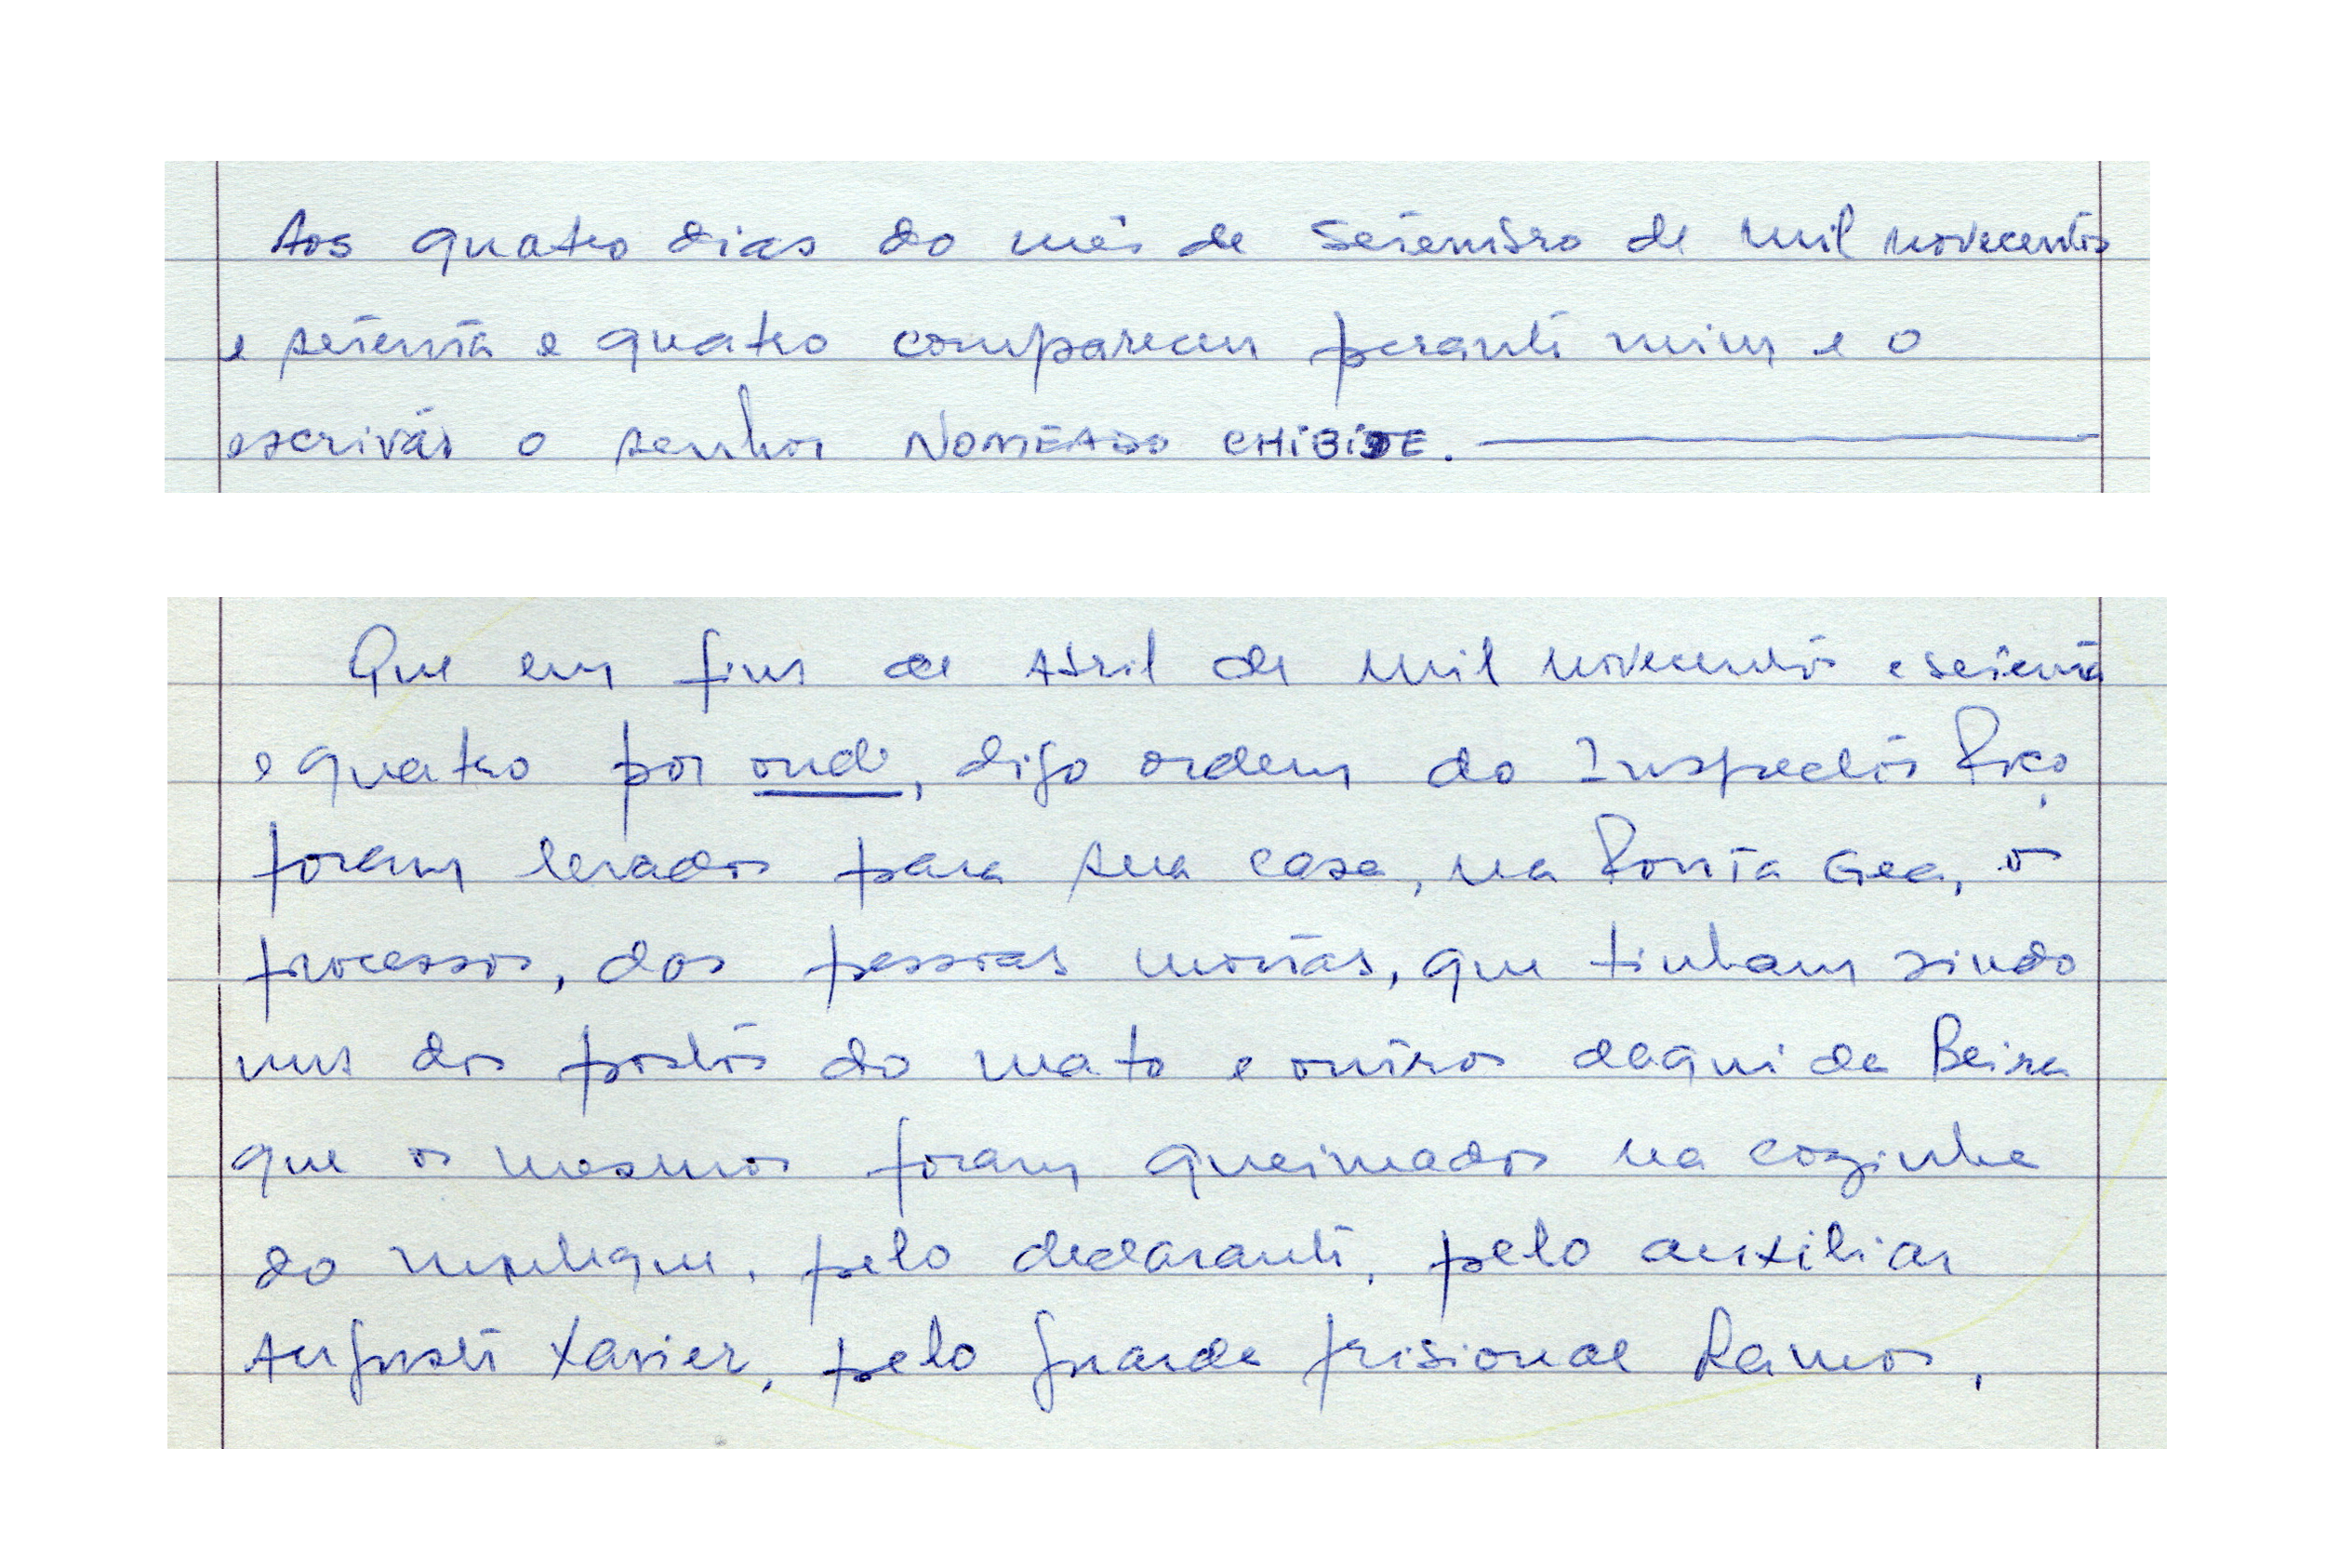 Aos quatro dias do mês de Setembro de mil novecentos
e setenta e quatro compareceu perante mim e o
escrivão o senhor NOMEADO CHIBIDE.
Que em fins de Abril de mil novecentos e setenta
e quatro por onde, digo ordem do Inspector
foram levados para sua casa, na Ponta Gea, os
processos, dos pessoas mortas, que tinham sindo
uns dos postos do mato e outros daqui da Beira
que os mesmos foram queimados na cozinha
do, pelo declarante, pelo auxiliar
Augusto Xavier, pelo guarda prisional Ramos,